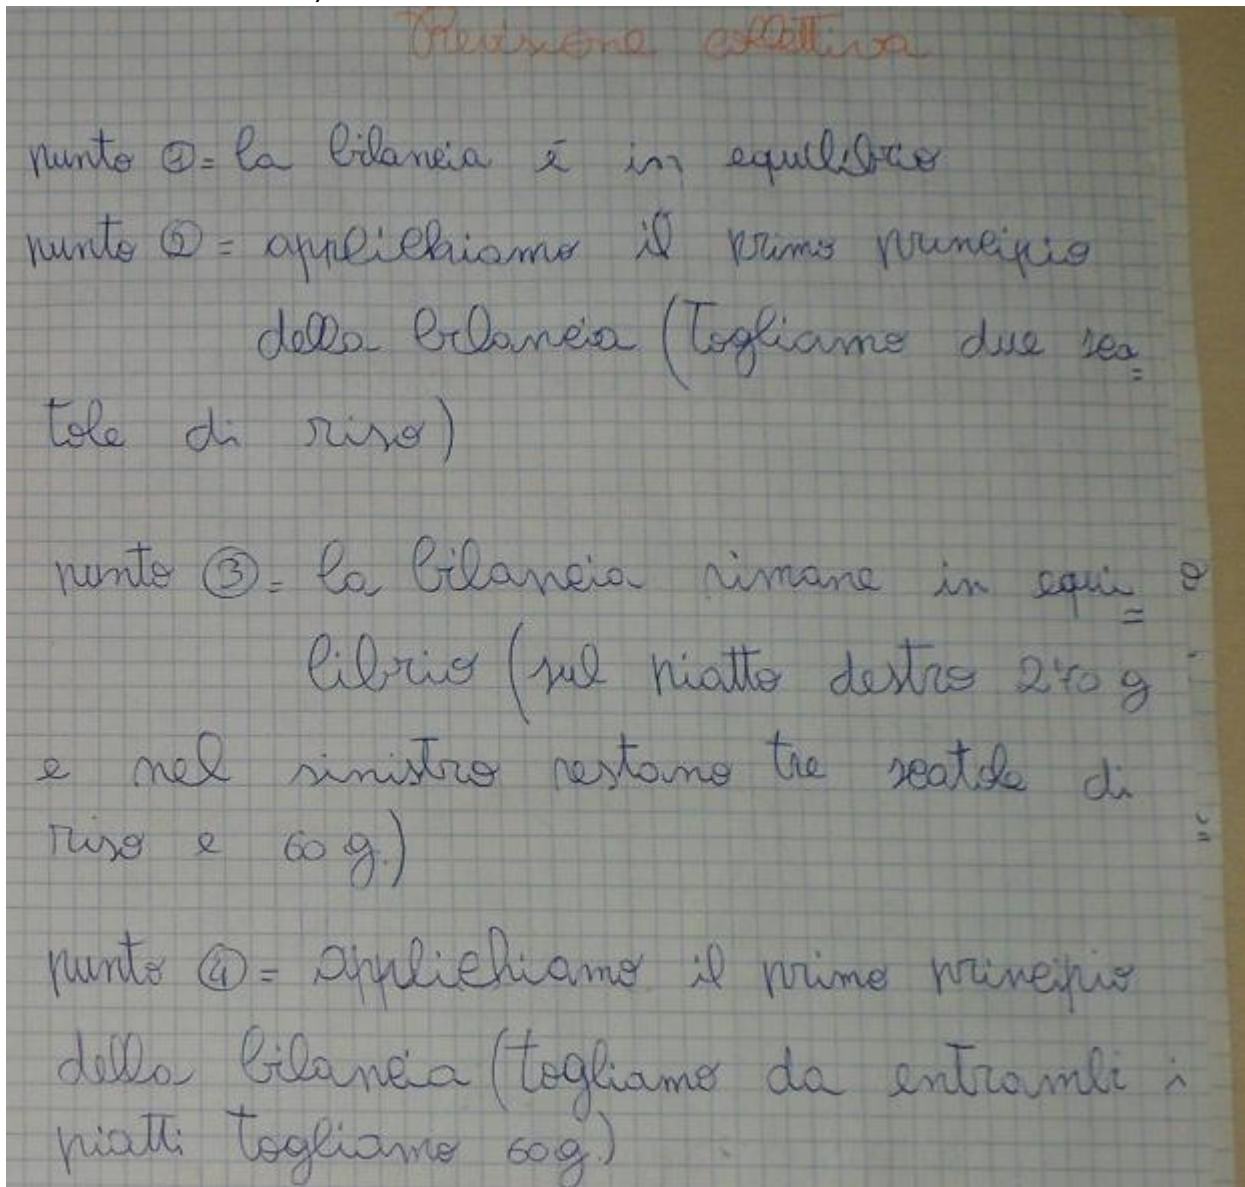 Revisione collettiva
punto ①= la bilancia è in equilibrio
punto ②= applichiamo il primo principio
della bilancia (Togliamo due sca=
tole di riso)
punto ③= la bilancia rimane in equi=
librio (sul piatto destro 270 g
e nel sinistro restano tre scatole di
riso e 60 g.)
punto ④= applichiamo il primo principio
della bilancia (togliamo da entrambi i
piatti togliamo 60g.)